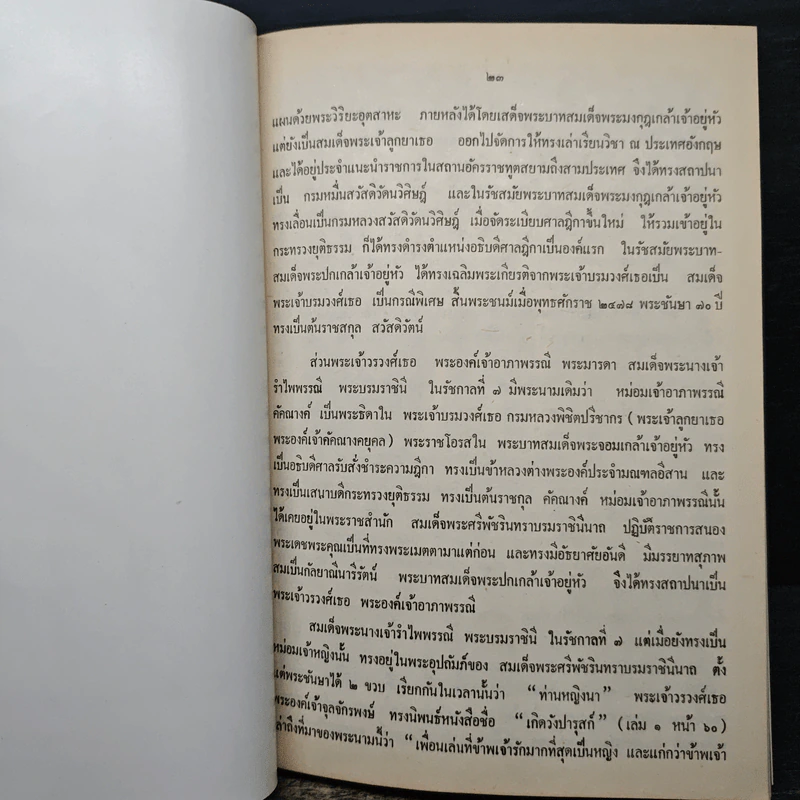 ๒๓
แผนด้วยพระวิริยะอุตสาหะ ภายหลังได้โดยเสด็จพระบาทสมเด็จพระมงกุฎเกล้าเจ้าอยู่หัว
แต่ยังเป็นสมเด็จพระเจ้าลูกยาเธอ ออกไปจัดการให้ทรงเล่าเรียนวิชา ณ ประเทศอังกฤษ
และได้อยู่ประจำแนะนำราชการในสถานอัครราชทูตสยามถึงสามประเทศ จึงได้ทรงสถาปนา
เป็น กรมหมื่นสวัสดิวัดนวิศิษฎ์ และในรัชสมัยพระบาทสมเด็จพระมงกุฎเกล้าเจ้าอยู่หัว
ทรงเลื่อนเป็นกรมหลวงสวัสดิวัดนวิศิษฎ์ เมื่อจัดระเบียบศาลฎีกาขึ้นใหม่ ให้รวมเข้าอยู่ใน
กระทรวงยุติธรรม ก็ได้ทรงดำรงตำแหน่งอธิบดีศาลฎีกาเป็นองค์แรก ในรัชสมัยพระบาท-
สมเด็จพระปกเกล้าเจ้าอยู่หัว ได้ทรงเฉลิมพระเกียรติจากพระเจ้าบรมวงศ์เธอเป็น สมเด็จ
พระเจ้าบรมวงศ์เธอ เป็นกรณีพิเศษ สิ้นพระชนม์เมื่อพุทธศักราช ๒๔๗๘ พระชันษา ๗๐ ปี
ทรงเป็นต้นราชสกุล สวัสดิวัตน์
ส่วนพระเจ้าวรวงศ์เธอ พระองค์เจ้าอาภาพรรณี พระมารดา สมเด็จพระนางเจ้า
รำไพพรรณี พระบรมราชินี ในรัชกาลที่ ๗ มีพระนามเดิมว่า หม่อมเจ้าอาภาพรรณี
คัคณางค์ เป็นพระธิดาใน พระเจ้าบรมวงศ์เธอ กรมหลวงพิชิตปรีชากร (พระเจ้าลูกยาเธอ
พระองค์เจ้าคัคณางคยุคล) พระราชโอรสใน พระบาทสมเด็จพระจอมเกล้าเจ้าอยู่หัว ทรง
เป็นอธิบดีศาลรับสั่งชำระความฎีกา ทรงเป็นข้าหลวงต่างพระองค์ประจำมณฑลอีสาน และ
ทรงเป็นเสนาบดีกระทรวงยุติธรรม ทรงเป็นต้นราชกุล คัคณางค์ หม่อมเจ้าอาภาพรรณีนั้น
ได้เคยอยู่ในพระราชสำนัก สมเด็จพระศรีพัชรินทราบรมราชินีนาถ ปฏิบัติราชการสนอง
พระเดชพระคุณเป็นที่ทรงพระเมตตามาแต่ก่อน และทรงมีอัธยาศัยอันดี มีมรรยาทสุภาพ
สมเป็นกัลยาณีนารีรัตน์ พระบาทสมเด็จพระปกเกล้าเจ้าอยู่หัว จึงได้ทรงสถาปนาเป็น
พระเจ้าวรวงศ์เธอ พระองค์เจ้าอาภาพรรณี
สมเด็จพระนางเจ้ารำไพพรรณี พระบรมราชินี ในรัชกาลที่ ๗ แต่เมื่อยังทรงเป็น
หม่อมเจ้าหญิงนั้น ทรงอยู่ในพระอุปถัมภ์ของ สมเด็จพระศรีพัชรินทราบรมราชินีนาถ ตั้ง
แต่พระชันษาได้ ๒ ขวบ เรียกกันในเวลานั้นว่า “ท่านหญิงนา” พระเจ้าวรวงศ์เธอ
พระองค์เจ้าจุลจักรพงษ์ ทรงนิพนธ์หนังสือชื่อ “เกิดวังปารุสก์” (เล่ม ๑ หน้า ๖๐)
ล่าถึงที่มาของพระนามนี้ว่า “เพื่อนเล่นที่ข้าพเจ้ารักมากที่สุดเป็นหญิง และแก่กว่าข้าพเจ้า